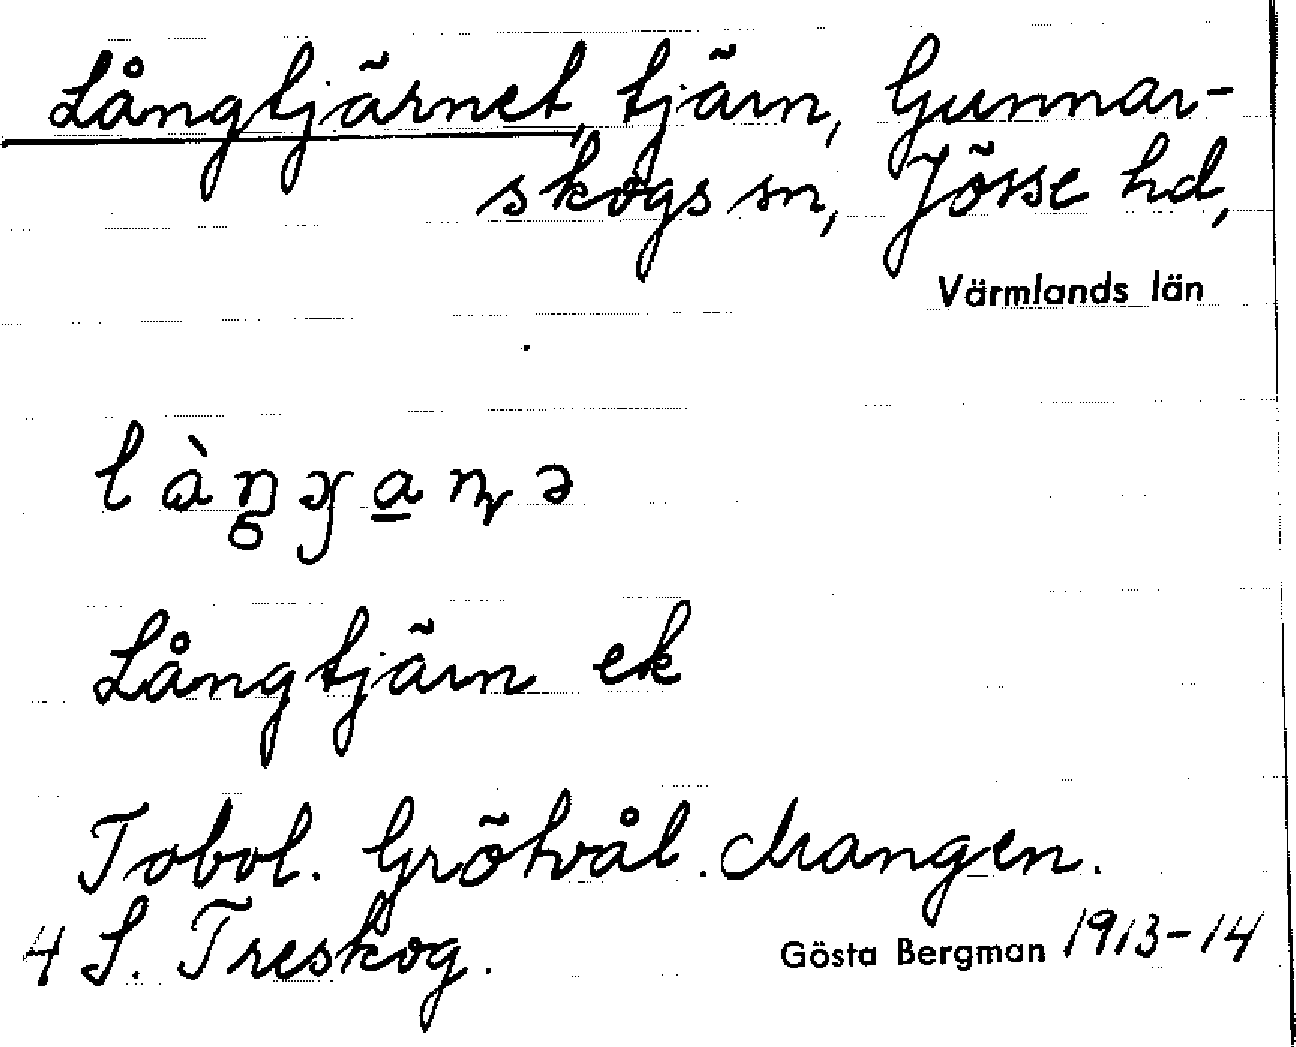 Långtjärnet, tjärn, Gunnar-
skogs sn, Jösse hd,
Värmlands län
Långtjärn ek
Tobol. Grötvål. Mangen.
4 S. Treskog.
Gösta Bergman 1913-14